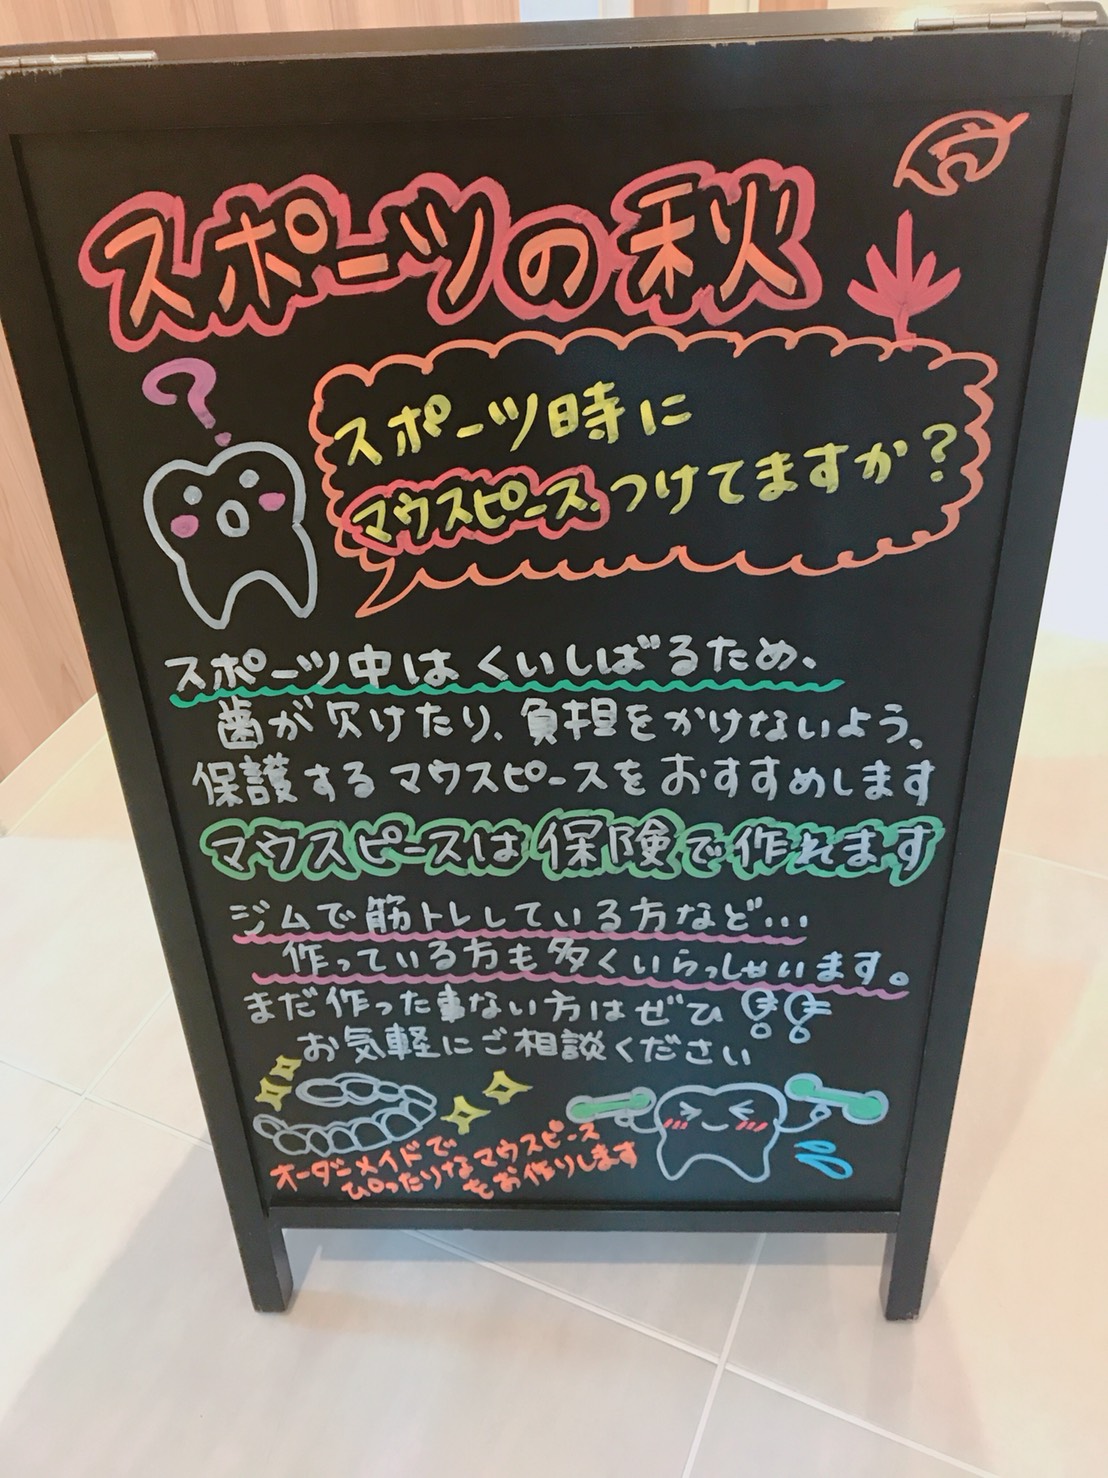 スポーツの秋
?
スポーツ時に
マウスピースつけてますか?
スポーツ中はくいしばるため、
歯が欠けたり、負担をかけないよう、
保護するマウスピースをおすすめします
マウスピースは保険で作れます
ジムで筋トレしている方など…
作っている方も多くいらっしゃいます。
まだ作った事ない方はぜひ!!
お気軽にご相談ください
オーダーメイドで
ぴったりなマウスピース
をお作りします